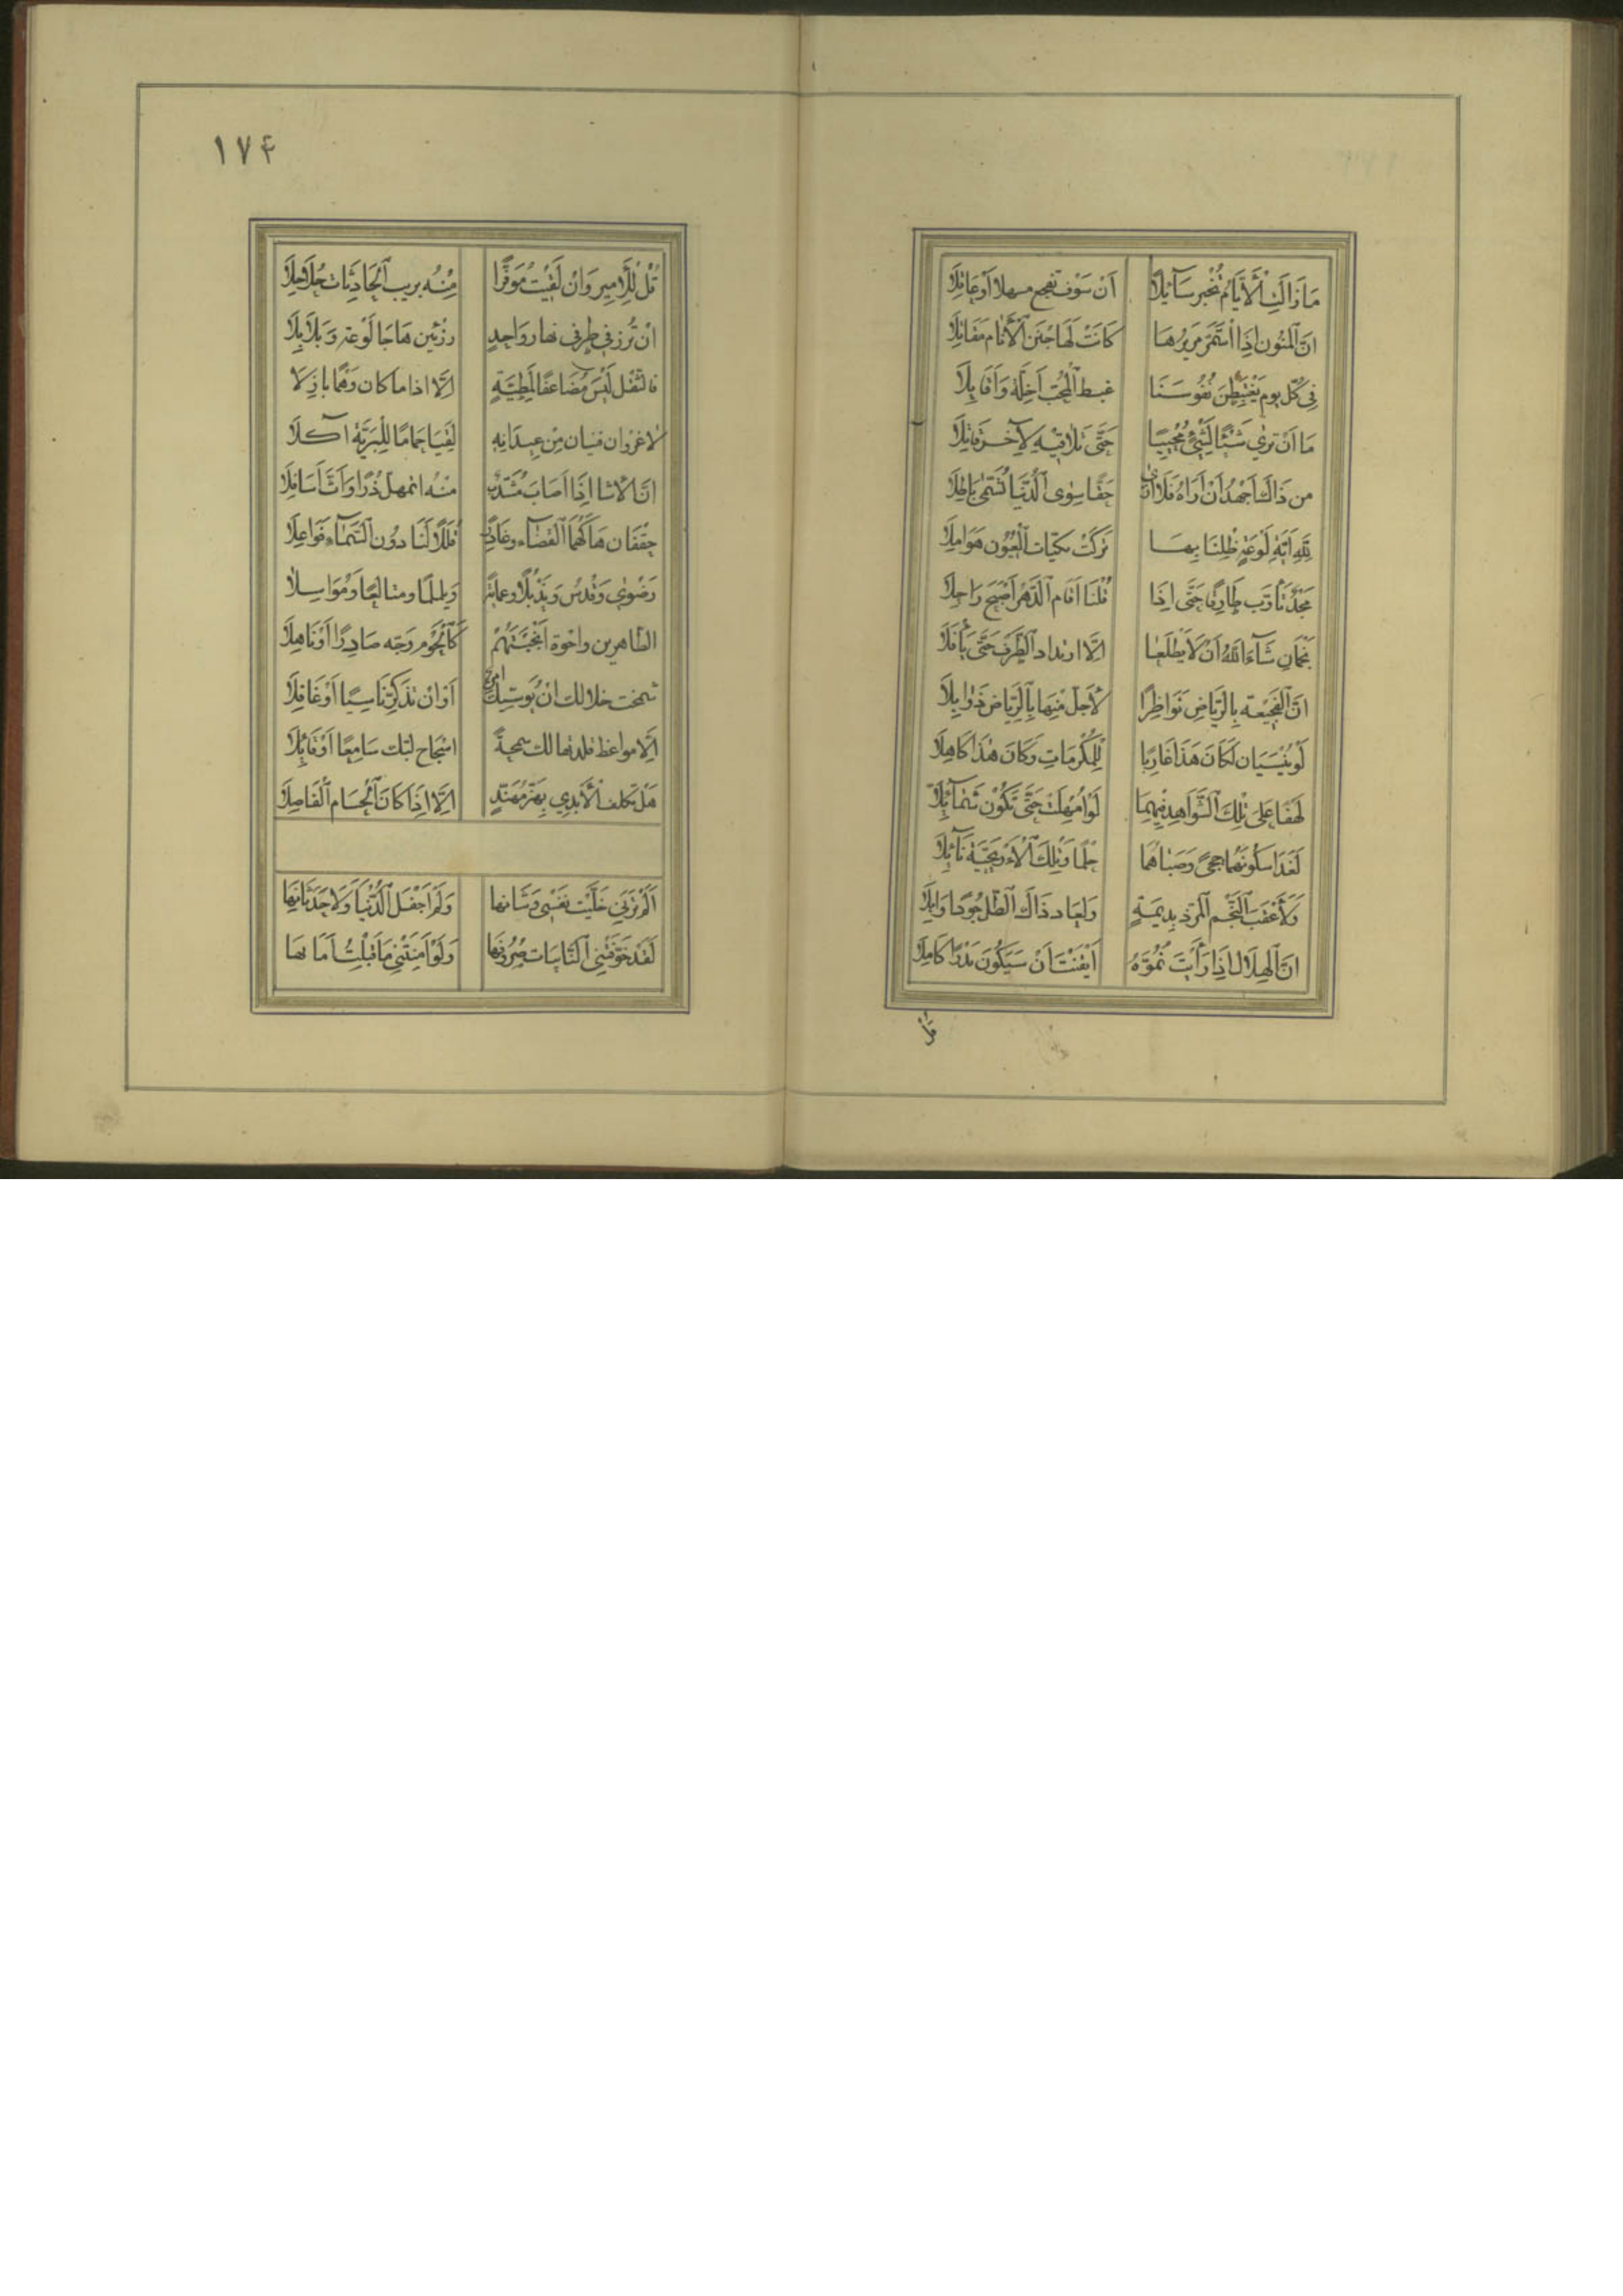 مَا زَالَتِ الْأَيَّامُ تُخْبِرُ سَآئِلًا اَنْ سَوْفَ تفجع مسهلا اَوْ عَاقِلَا
اِنَّ الْمَنُونَ اِذَا اسْتَمَرَّ مَرِيرُهَا كَانَتْ لَهَا جُنَنَ الْأَنَامِ مَقَاتِلَا
فِي كُلِّ يوم يَغْتَبِطْنَ نُفُوسَنَا غبط الْمُحِبِّ
مَا اَنْ تَرٰى شَيْئًا لِشَيْءٍ مُحْيِيًا حَتَّى تُلَاقِيَهُ لِآخَرَ قَاتِلَا
من ذَاكَ اَجْهَدُ اَنْ اَرَاهُ فَلَا اَرٰى حَقًّا سِوَى الدُّنْيَا تُسَمَّى بَاطِلَا
لِلّٰهِ اَيَّةُ لَوْعَةٍ ظِلْنَا بِهَا تَرَكَتْ بَكِيَّاتِ الْعُيُونِ هَوَامِلَا
مَجْدٌ تَأَوَّبَ طَارِقًا حَتَّى اِذَا قُلْنَا اَقَامَ الدَّهْرَ اَصْبَحَ رَاحِلَا
نَجْمَانِ شَآءَ اللهُ اَنْ لَا يَطْلُعَا اِلَّا ارتداد الطَّرْفِ حَتَّى يَأْفِلَا
اِنَّ الْفَجِيعَةَ بِالرِّيَاضِ نَوَاظِرًا لَأَجَلُّ مِنْهَا بِالرِّيَاضِ ذَوَابِلَا
لَوْ يُنْسَيَانِ لَكَانَ هَذَا غَارِبًا لِلْمَكْرُمَاتِ وَكَانَ هٰذَا كَاهِلَا
لَهَفًا عَلٰى تِلْكَ الشَّوَاهِدِ فِيهِمَا لَوْ اُمْهِلَتْ حَتَّى تَكُوْنَ شَمَآئِلَا
لَغَدَا سُكُونُهُمَا حِجًى وَصِبَاهُمَا حِلْمًا وَتِلْكَ الْأَرْيَحِيَّةُ نَآئِلَا
وَلَأَعْقَبَ النَّجْمُ الْمُرِذُّ بِدِيمَةٍ وَلَعَادَ ذَاكَ الطَّلُّ جُوْدًا وَابِلَا
اِنَّ الْهِلَالَ اِذَا رَأَيْتَ نُمُوَّهُ اَيْقَنْتَ اَنْ سَيَكُونُ بَدْرًا كَامِلَا
قُلْ
١٧٤
قُلْ لِلْأَمِيرِ وَاِنْ لَقِيْتَ مُوَقَّرًا مِنْهُ بريب الْحَادِثَاتِ حُلَاحِلَا
اِنْ تُرْزَ فِي طرفي نهار وَاحِدٍ رُزْئَيْنِ هَاجَا لَوْعَةً وَبَلَابِلَا
فالثقل لَيْسَ مُضَاعَفًا لِمَطِيَّةٍ اِلَّا اذا ما كان وَهْمًا بازِلَا
لا غَرْوَ ان فننان مِنْ عِيدَانِهِ لَقِيَا حِمَامًا لِلْبَرِيَّةِ آكِلَا
اِنَّ الاشا اِذَا اَصَابَ مُشَذِّبٌ مِنْهُ اتمهلّ ذُرًا وَاَثَّ اَسَافِلَا
حِقْفَانِ هَالَهُمَا الْقَضَآءُ وغادرا قُلَلًا لَنَا دُونَ السَّمَآءِ قَوَاعِلَا
رَضْوٰى وَقُدْسَ وَيَذْبُلًا وعماية وَيلملما ومتالعًا وَمُوَاسِلَا
الطاهرين واخوة اَنْجَبْتَهُمْ كَالنُّجُوْمِ وَجَّهَ صَادِرًا اَوْ نَاهِلَا
شمخت خلالك اَنْ يُوَسِّيَكَ امرؤ اَوْ اَنْ تُذَكَّرَ نَاسِيًا اَوْ غَافِلَا
اِلَّا مواعظ قادها لك سمحةً اسْجاح لبّك سَامِعًا اَوْ قَآئِلَا
هَلْ تكلف الْأَيْدِي بِهَزِّ مُهَنَّدٍ اِلَّا اِذَا كَانَ الْحُسَامَ الْفَاصِلَا
اَلَمْ تَرَنِي خَلَّيْتُ نَفْسِي وَشَانَهَا وَلَمْ اَحْفَلِ الدُّنْيَا وَلَا حَدَثَانَهَا
لَقَدْ خَوَّفَتْنِي النَّائِبَاتُ صُرُوفَهَا وَلَوْ اَمَّنَتْنِي مَا قَبِلْتُ اَمَانَهَا